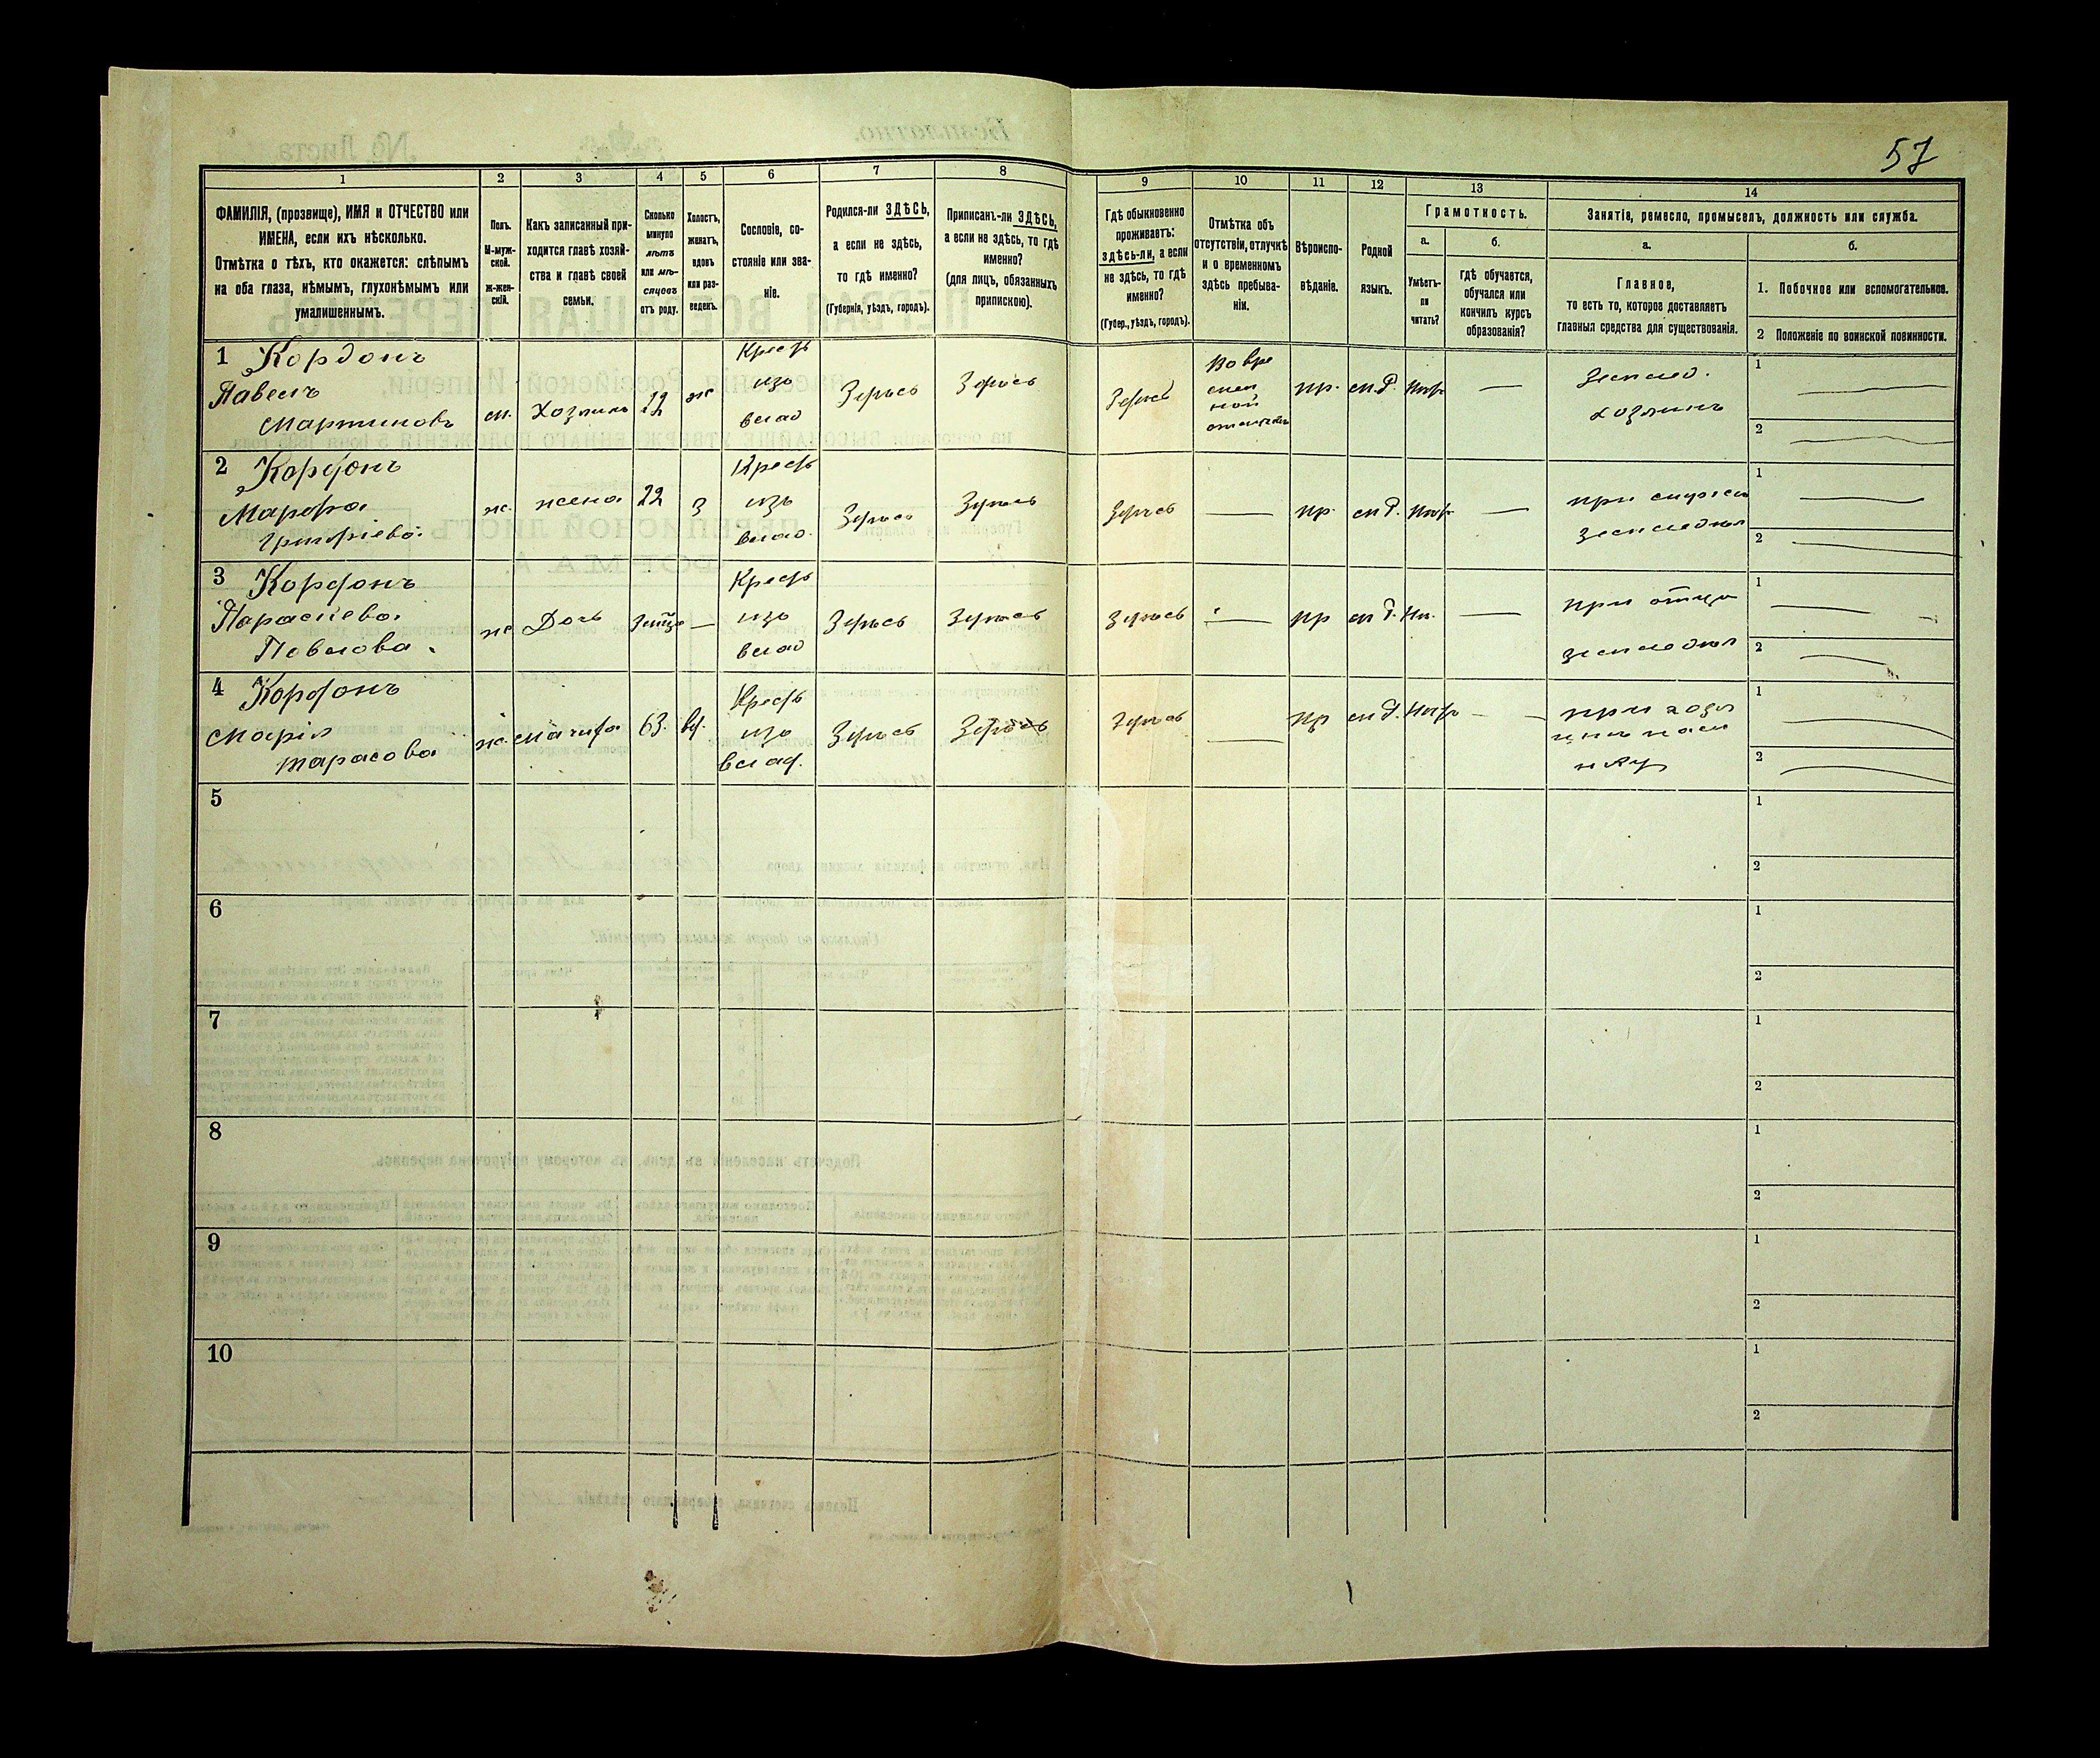 57
1
2
3
4
5
6
7
8
9
10
11
12
13
14
ФАМИЛІЯ, (прозвище), ИМЯ и ОТЧЕСТВО или
ИМЕНА, если ихъ нѣсколько.
Отмѣтка о тѣхъ, кто окажется: слѣпымъ
на оба глаза, нѣмымъ, глухонѣмымъ или
умалишеннымъ.
Полъ.
М-муж-
ской.
ж-жен-
скій.
Какъ записанный при-
ходится главѣ хозяй-
ства и главѣ своей
семьи.
Сколько
минуло
лѣтъ
или мѣ-
сяцевъ
отъ роду.
Холостъ,
женатъ,
вдовъ
или раз-
веденъ.
Сословіе, со-
стояніе или зва-
ніе.
Родился-ли ЗДѢСЬ,
а если не здѣсь,
то гдѣ именно?
(Губернія, уѣздъ, городъ).
Приписанъ-ли ЗДѢСЬ,
а если не здѣсь, то гдѣ
именно?
(для лицъ, обязанныхъ
припискою).
Гдѣ обыкновенно
проживаетъ:
ЗДѢСЬ-ЛИ, а если
не здѣсь, то гдѣ
именно?
(Губер., уѣздъ, городъ).
Отмѣтка объ
отсутствіи, отлучкѣ
и о временномъ
здѣсь пребыва-
ніи.
Вѣроиспо-
вѣданіе.
Родной
языкъ.
Грамотность.
а.
Умѣетъ-
ли
читать?
б.
гдѣ обучается,
обучался или
кончилъ курсъ
образованія?
Занятіе, ремесло, промыселъ, должность или служба.
а.
Главное,
то есть то, которое доставляетъ
главныя средства для существованія.
б.
1. Побочное или вспомогательное.
2 Положеніе по воинской повинности.
1 Кордонъ
Павелъ
Мартиновъ
м.
Хозяинъ
22
ж
Крест
изъ
влад
Здѣсь
Здѣсь
Здѣсь
Во вре
мен
ной
пр.
м.Р.
Землед.
хозяинъ
1
2
2 Кордонъ
Марфа
Григоріева
ж.
жена
22
З
Крест
изъ
влад.
Здѣсь
Здѣсь
Здѣсь
пр.
м Р.
при мужи
1
2
3 Кордонъ
Параскева
Павлова
ж
Дочь
Крест
изъ
влад
Здѣсь
Здѣсь
Здѣсь
пр
м Р.
при отцу
1
2
4 Кордонъ
Марія
Тарасова
ж.
Мачиха
63.
вд.
Крест
изъ
влад.
Здѣсь
Здѣсь
Здѣсь
пр
м Р.
1
2
5
1
2
6
1
2
7
1
2
8
1
2
9
1
2
10
1
2